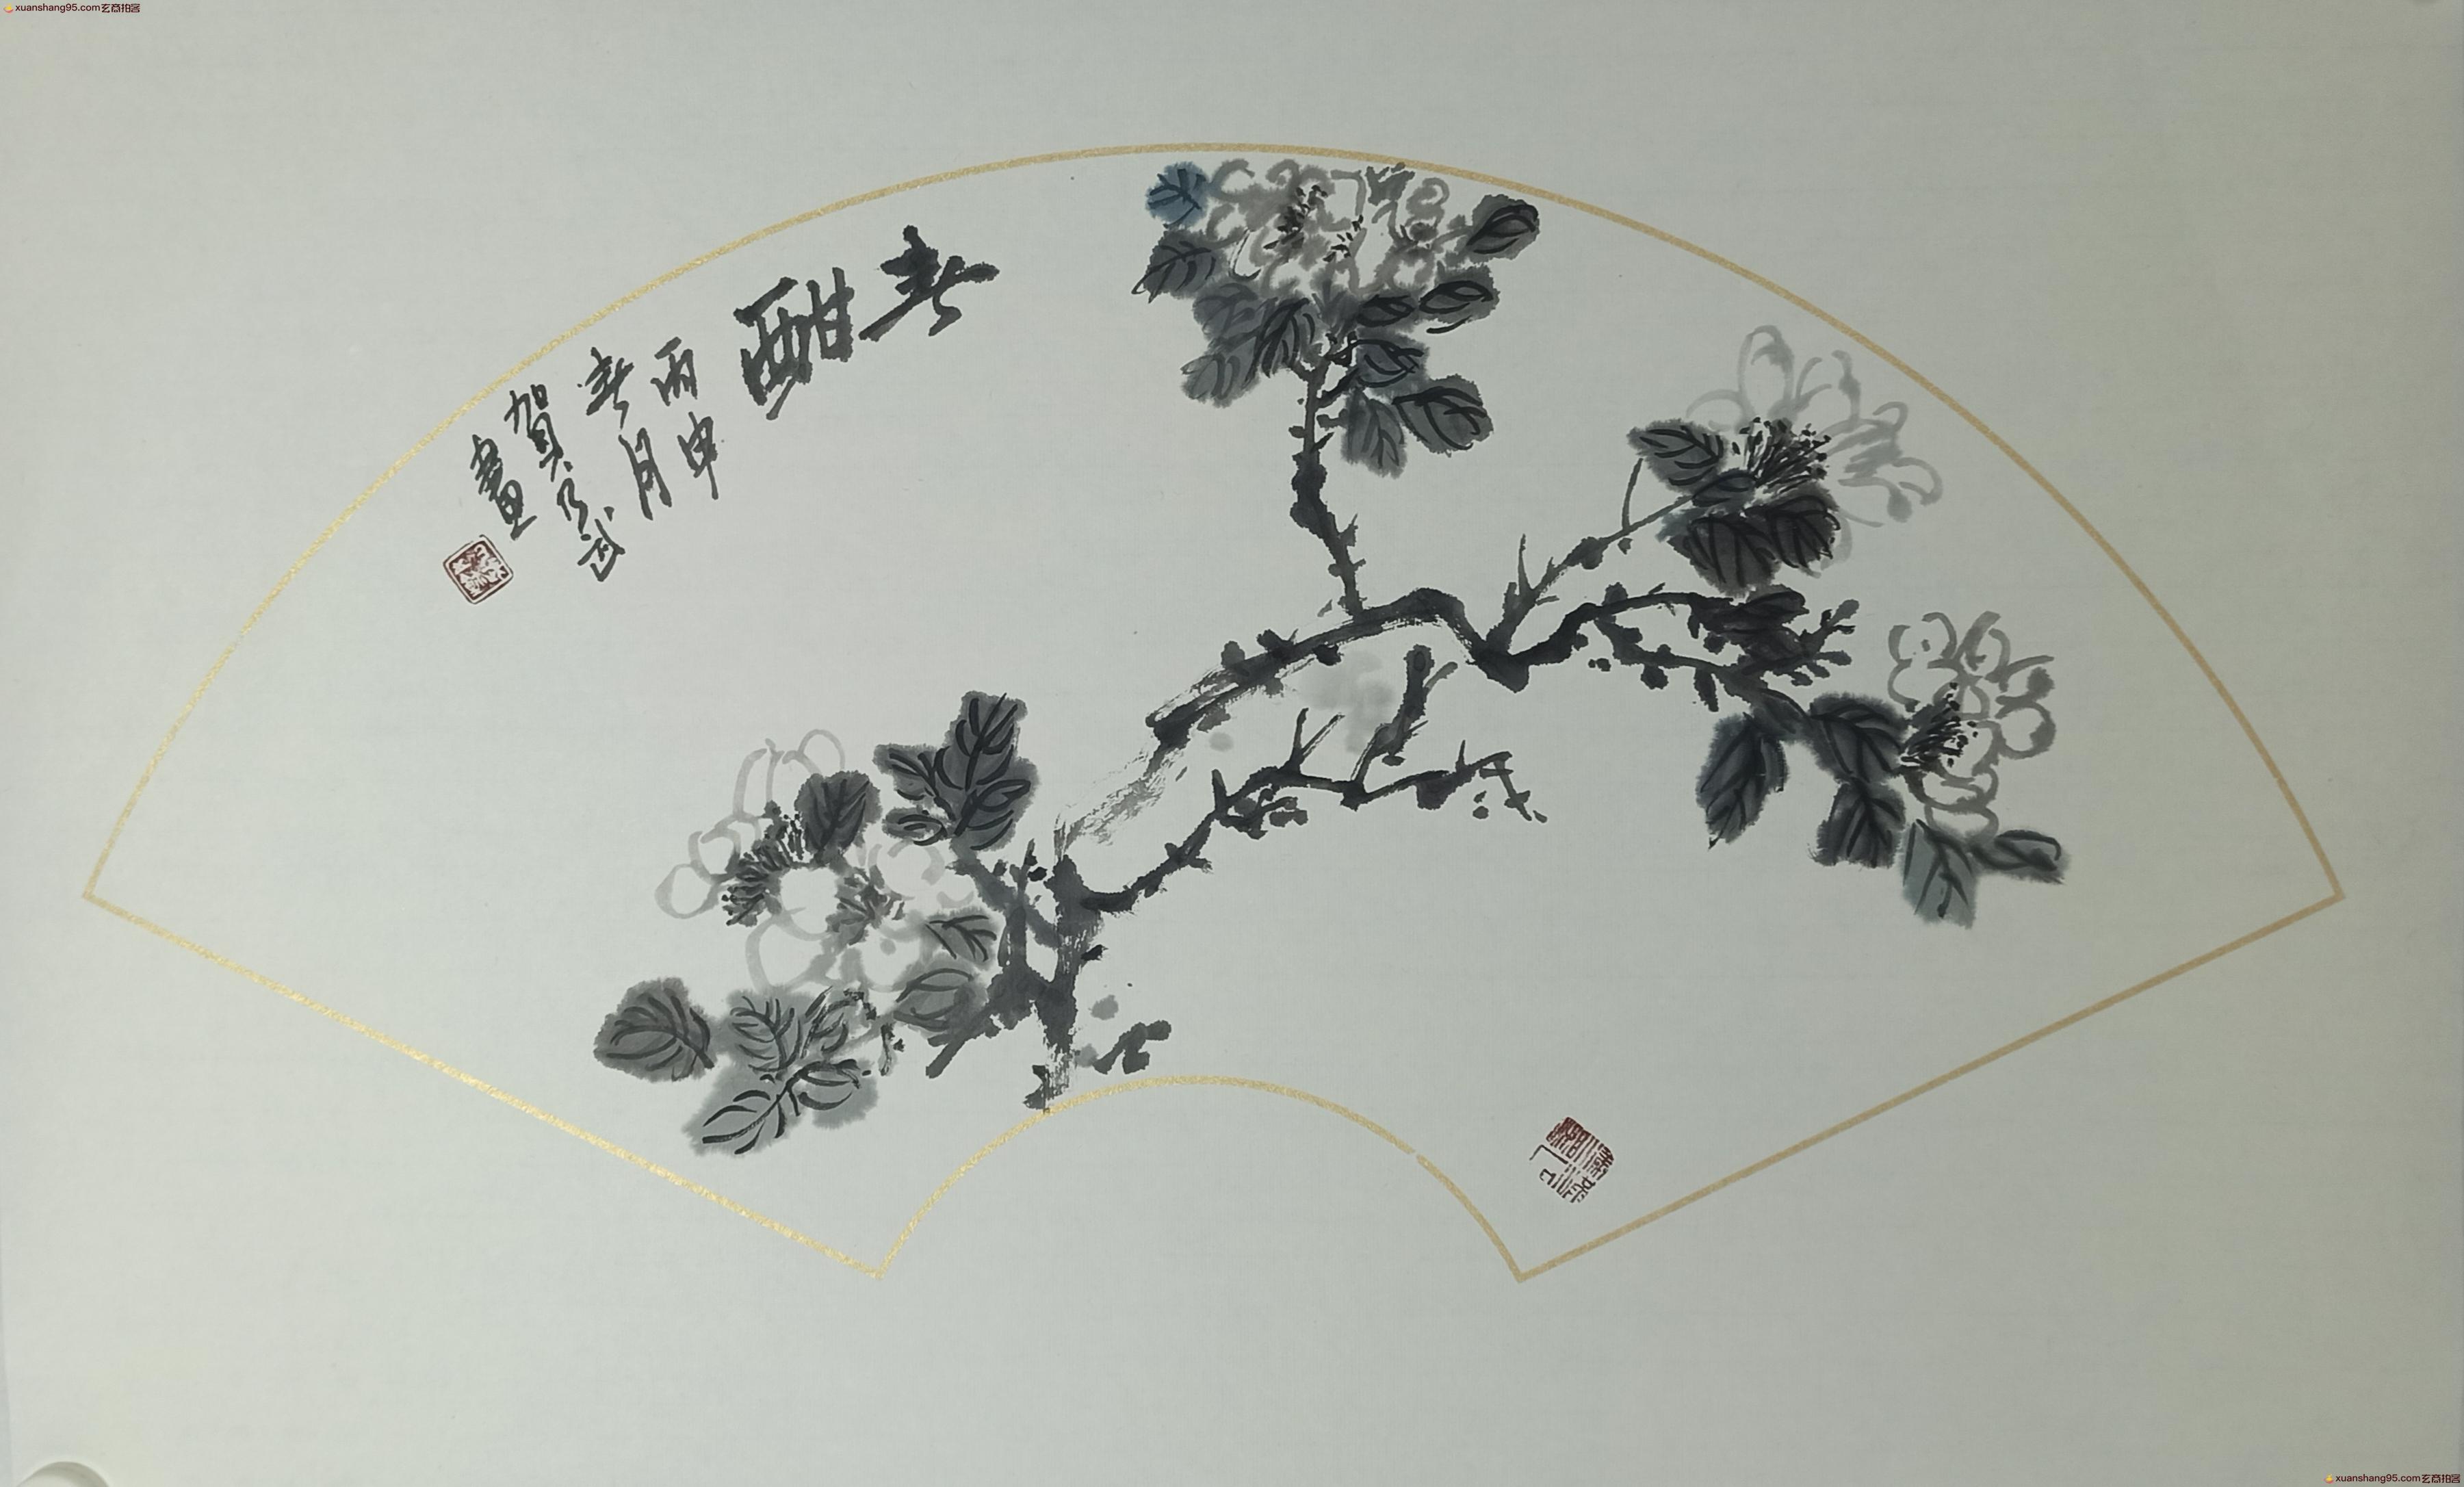 xuanshang95.com玄商拍客
春酣
丙申
春月
賀乃武
畫
xuanshang95.com玄商拍客